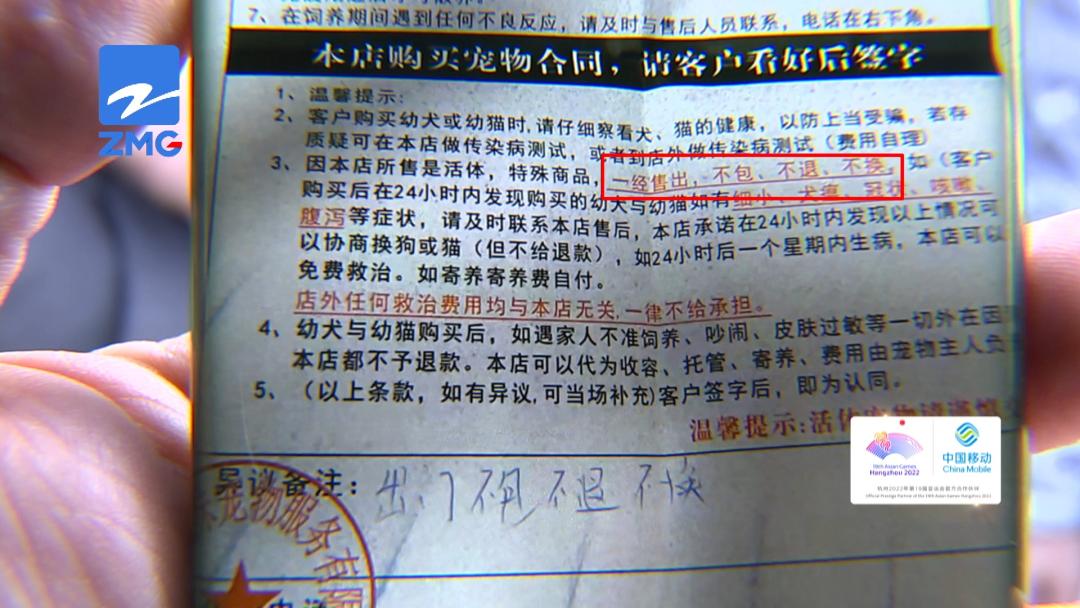 7、在饲养期间遇到任何不良反应，请及时与售后人员联系，电话在右下角。
本店购买宠物合同，请客户看好后签字
ZMG
1、温馨提示：
2、客户购买幼犬或幼猫时,请仔细察看犬、猫的健康，以防上当受骗，若存
质疑可在本店做传染病测试，或者到店外做传染病测试（费用自理）
3、因本店所售是活体，特殊商品，一经售出，不包、不退、不换，如（客户
购买后在24小时内发现购买的幼犬与幼猫如有细小、犬瘟、冠状、咳嗽、
腹泻等症状，请及时联系本店售后，本店承诺在24小时内发现以上情况可
以协商换狗或猫（但不给退款），如24小时后一个星期内生病，本店可以
免费救治。如寄养寄养费自付。
店外任何救治费用均与本店无关,一律不给承担。
4、幼犬与幼猫购买后，如遇家人不准饲养、吵闹、皮肤过敏等一切外在因
本店都不予退款。本店可以代为收容、托管、寄养、费用由宠物主人负
5、（以上条款，如有异议,可当场补充)客户签字后，即为认同。
温馨提示:活体
19th Asian Games
Hangzhou 2022
中国移动
China Mobile
杭州2022年第19届亚运会官方合作伙伴
Official Prestige Partner of the 19th Asian Games Hangzhou 2022
异议备注：出门不包不退不换
宠物服务有限